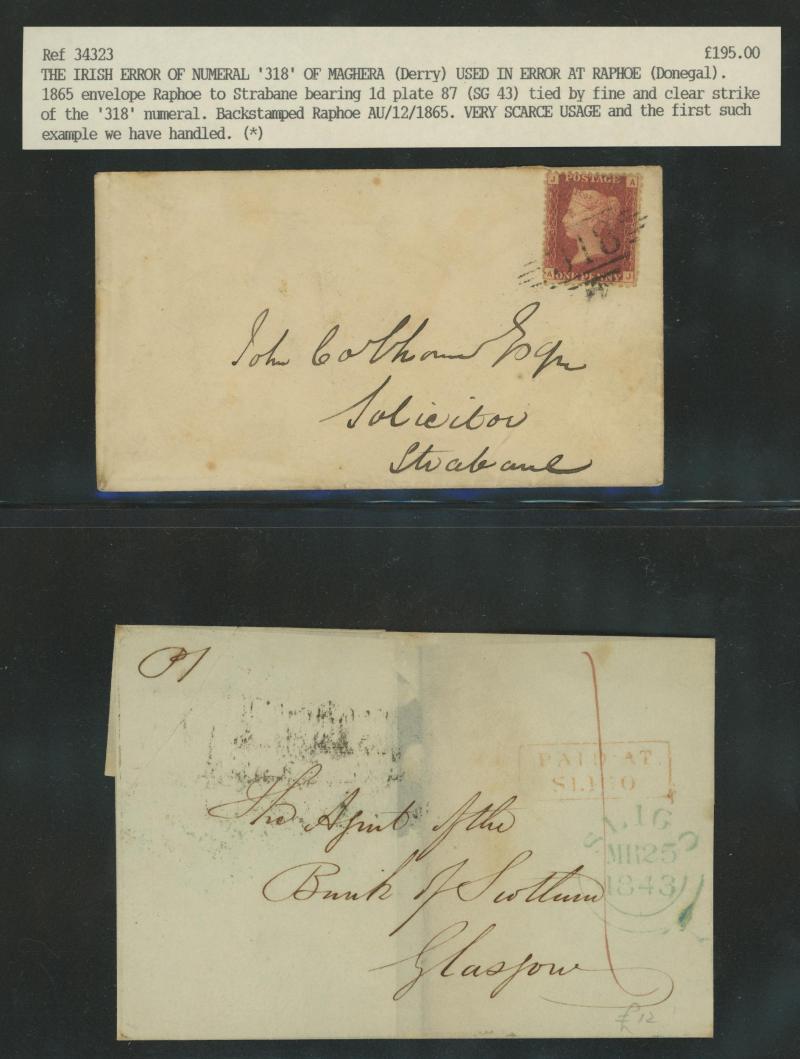 Ref 34323 £195.00
THE IRISH ERROR OF NUMERAL '318' OF MAGHERA (Derry) USED IN ERROR AT RAPHOE (Donegal).
1865 envelope Raphoe to Strabane bearing 1d plate 87 (SG 43) tied by fine and clear strike
of the '318' numeral. Backstamped Raphoe AU/12/1865. VERY SCARCE USAGE and the first such
example we have handled. (*)
J POSTAGE A
318
A ONE PENNY J
John Colhoun Esqr
Solicitor
Strabane
P1
PAID AT
SLIGO
SLIGO
MR25
1843
The Agent of the
Bank of Scotland
Glasgow
£12